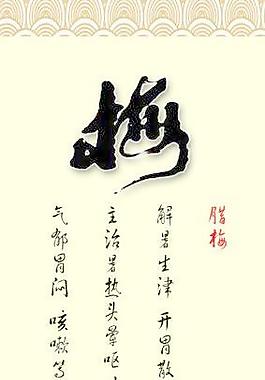 梅
腊梅
解暑生津 开胃散
主治暑热头晕呕
气郁胃闷 咳嗽等